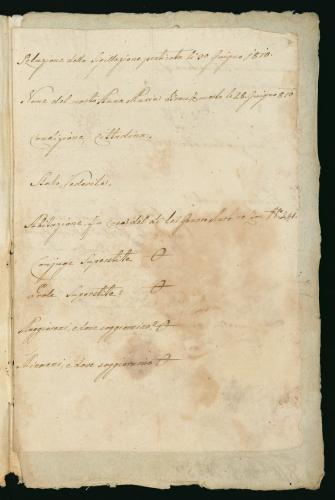 Relazione della Ispezione praticata li 30 Giugno 1810.
Nome del morto Anna Maria morto li 28 Giugno 810
Condizione Cittadina.
Stato, Vedovile.
Abitazione in casa del di lei
Conjuge Superstite O
Prole Superstite O
Maggiorenni, e dove soggiornino? O
Minorenni, e dove soggiornino O